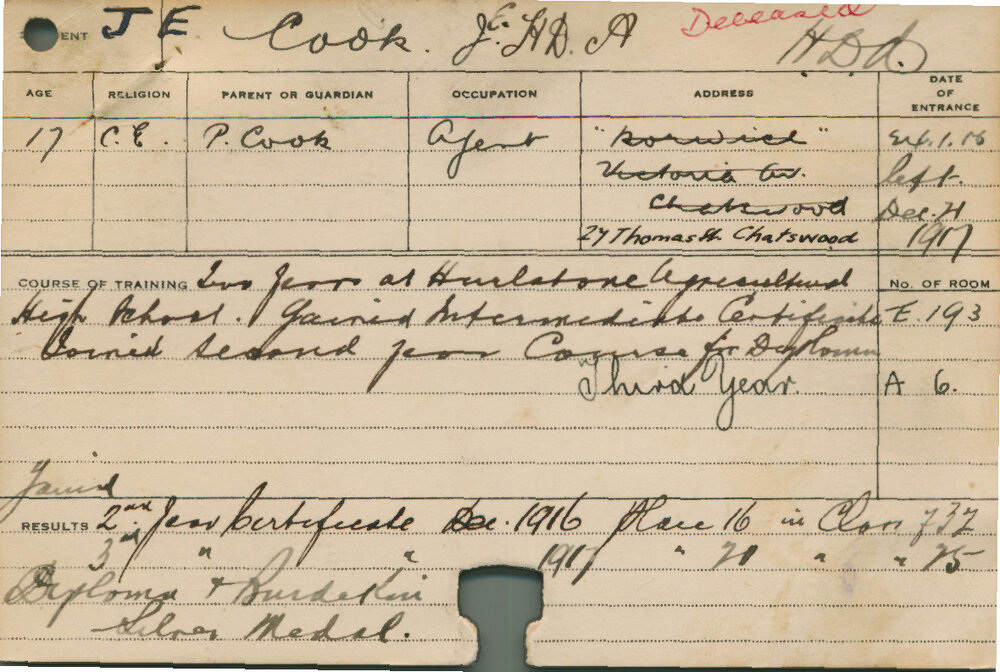 J E Cook. J.E. H.D.A Deceased
H.D.A.
AGE RELIGION PARENT OR GUARDIAN OCCUPATION ADDRESS DATE OF ENTRANCE
17 C.E. P. Cook Agent
Victoria Av. left.
Chatswood Dec. 21
27 Thomas St. Chatswood 1917
COURSE OF TRAINING Two years at Hurlstone Agricultural No. OF ROOM
High School. Gained Intermediate Certificate E. 193
Joined second year Course for Diploma
Third Year. A 6.
Gained
RESULTS 2nd. Year Certificate Dec. 1916 Place 16 in Class of 37
3rd " " 1917 " 20 " " 25
Diploma + Burdekin
Silver Medal.